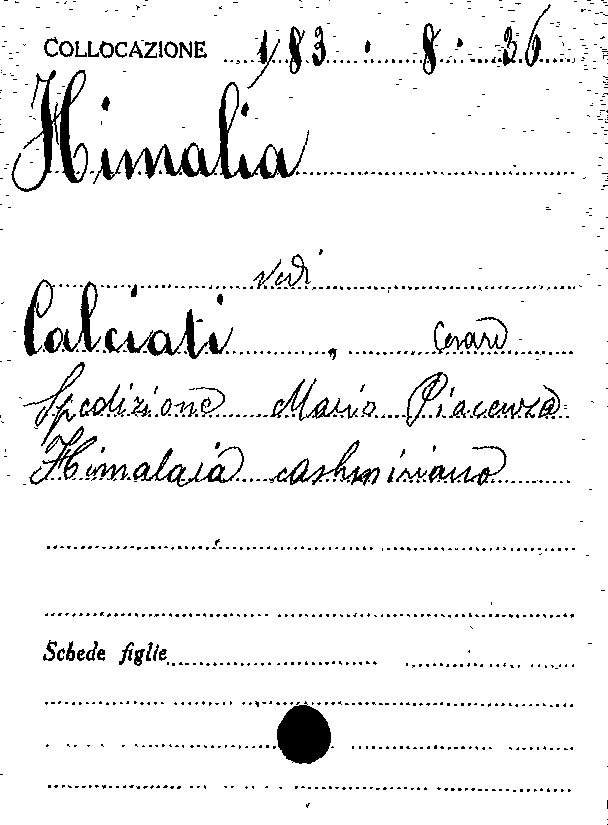 COLLOCAZIONE 183 . 8 . 36
Himalia
vedi
Calciati, Cesare
Spedizione Mario Piacenza
Himalaia cashmiriano
Schede figlie